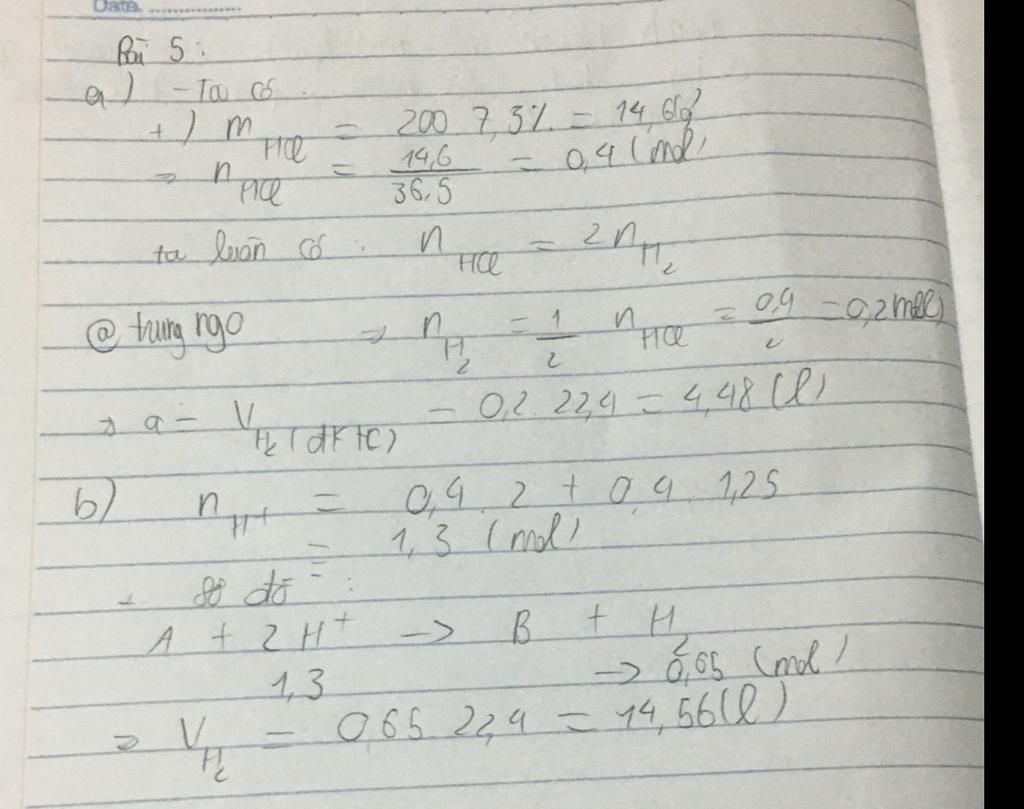 Date
Bài 5:
a) - Ta có
+) m HCl = 200 7,3% = 14,6g
=> n HCl = 14,6/36,5 = 0,4 (mol)
ta luôn có : n HCl = 2 n H2
@ trung ngo => n H2 = 1/2 n HCl = 0,4/2 = 0,2 mol)
=> a = V H2 (đktc) = 0,2. 22,4 = 4,48 (l)
b) n H+ = 0,4. 2 + 0,4. 1,25
= 1,3 (mol)
- Sơ đồ :
A + 2H+ -> B + H2
1,3 -> 0,65 (mol)
=> V H2 = 0,65 22,4 = 14,56 (l)